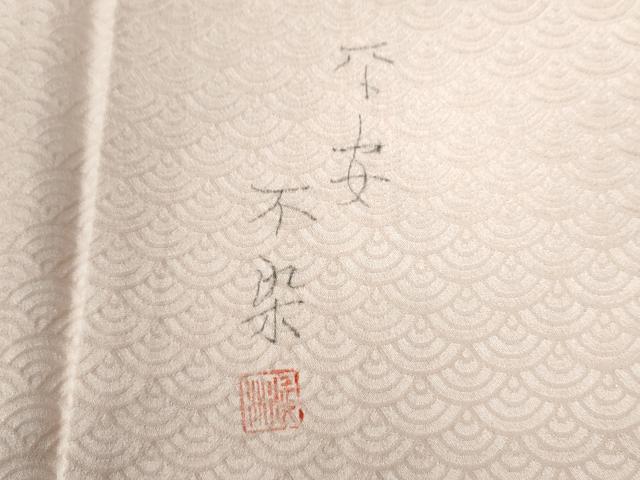 平安
不染